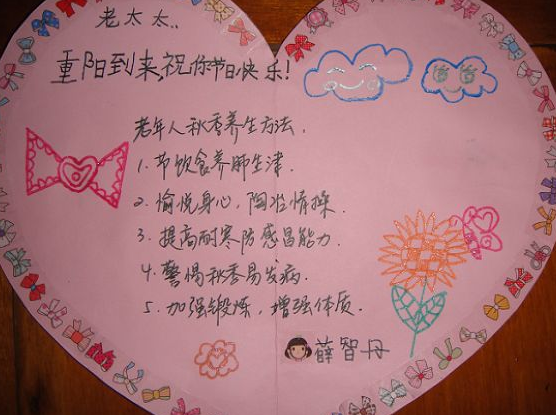 老太太..
重阳到来,祝你节日快乐!
老年人秋季养生方法.
1.节饮食养肺生津.
2.愉悦身心,陶冶情操.
3.提高耐寒防感冒能力.
4.警惕秋季易发病.
5.加强锻炼,增强体质.
薛智丹